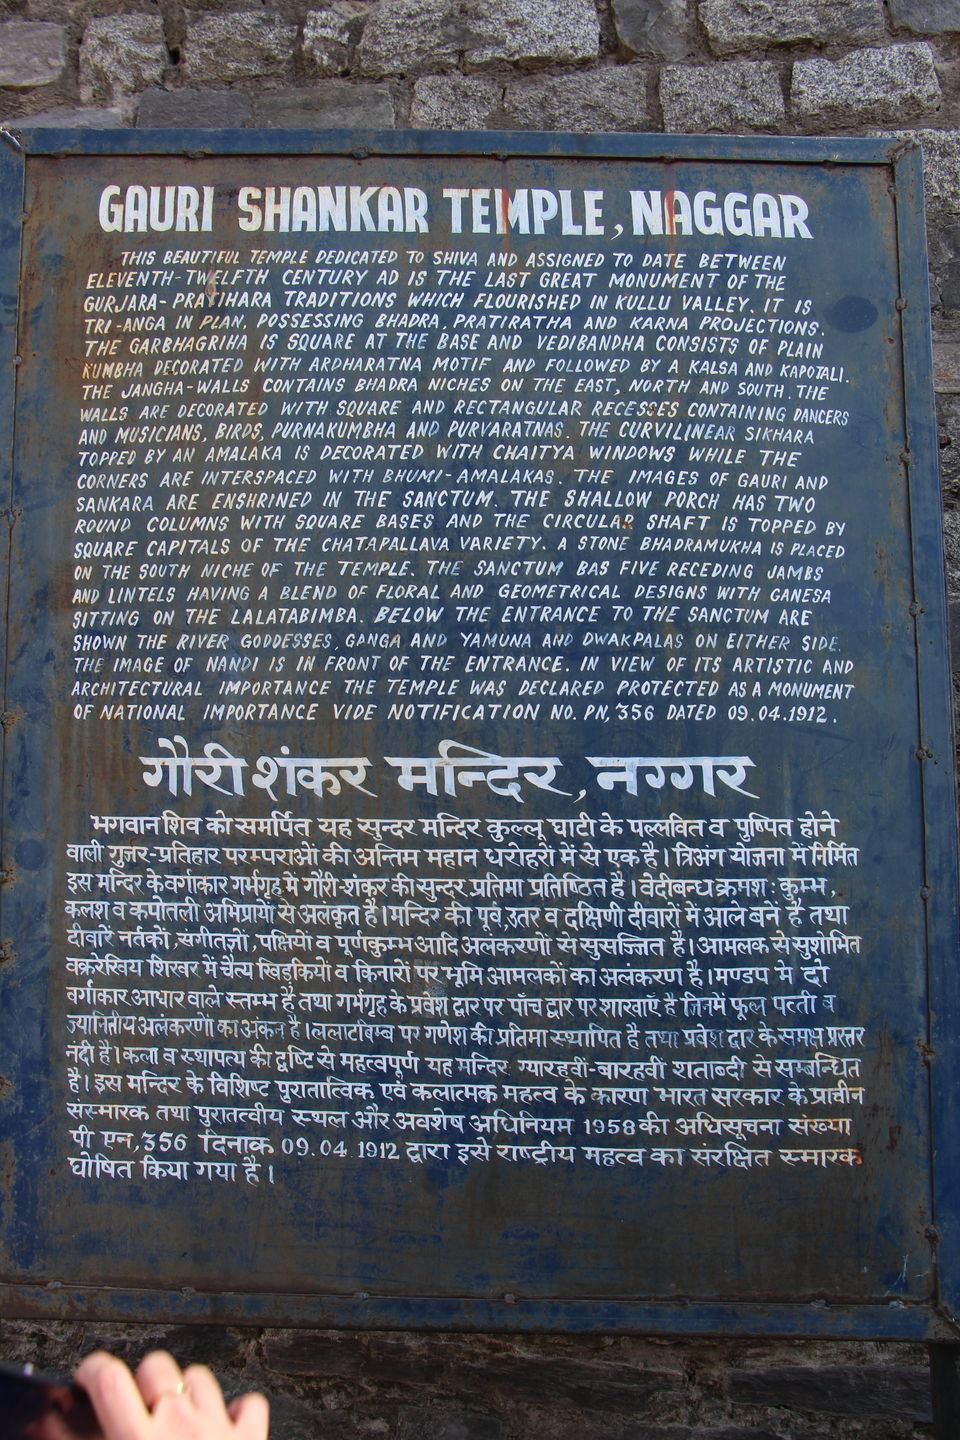 GAURI SHANKAR TEMPLE, NAGGAR
THIS BEAUTIFUL TEMPLE DEDICATED TO SHIVA AND ASSIGNED TO DATE BETWEEN
ELEVENTH-TWELFTH CENTURY AD IS THE LAST GREAT MONUMENT OF THE
GURJARA-PRATIHARA TRADITIONS WHICH FLOURISHED IN KULLU VALLEY. IT IS
TRI-ANGA IN PLAN, POSSESSING BHADRA, PRATIRATHA AND KARNA PROJECTIONS.
THE GARBHAGRIHA IS SQUARE AT THE BASE AND VEDIBANDHA CONSISTS OF PLAIN
KUMBHA DECORATED WITH ARDHARATNA MOTIF AND FOLLOWED BY A KALSA AND KAPOTALI.
THE JANGHA-WALLS CONTAINS BHADRA NICHES ON THE EAST, NORTH AND SOUTH. THE
WALLS ARE DECORATED WITH SQUARE AND RECTANGULAR RECESSES CONTAINING DANCERS
AND MUSICIANS, BIRDS, PURNAKUMBHA AND PURVARATNAS. THE CURVILINEAR SIKHARA
TOPPED BY AN AMALAKA IS DECORATED WITH CHAITYA WINDOWS WHILE THE
CORNERS ARE INTERSPACED WITH BHUMI-AMALAKAS. THE IMAGES OF GAURI AND
SANKARA ARE ENSHRINED IN THE SANCTUM. THE SHALLOW PORCH HAS TWO
ROUND COLUMNS WITH SQUARE BASES AND THE CIRCULAR SHAFT IS TOPPED BY
SQUARE CAPITALS OF THE CHATAPALLAVA VARIETY. A STONE BHADRAMUKHA IS PLACED
ON THE SOUTH NICHE OF THE TEMPLE. THE SANCTUM BAS FIVE RECEDING JAMBS
AND LINTELS HAVING A BLEND OF FLORAL AND GEOMETRICAL DESIGNS WITH GANESA
SITTING ON THE LALATABIMBA. BELOW THE ENTRANCE TO THE SANCTUM ARE
SHOWN THE RIVER GODDESSES, GANGA AND YAMUNA AND DWAKPALAS ON EITHER SIDE.
THE IMAGE OF NANDI IS IN FRONT OF THE ENTRANCE. IN VIEW OF ITS ARTISTIC AND
ARCHITECTURAL IMPORTANCE THE TEMPLE WAS DECLARED PROTECTED AS A MONUMENT
OF NATIONAL IMPORTANCE VIDE NOTIFICATION NO. PN, 356 DATED 09.04.1912.
गौरी शंकर मन्दिर, नग्गर
भगवान शिव को समर्पित यह सुन्दर मन्दिर कुल्लू घाटी के पल्लवित व पुष्पित होने
वाली गुजर-प्रतिहार परम्पराओं की अन्तिम महान धरोहरों में से एक है। त्रिअंग योजना में निर्मित
इस मन्दिर के वर्गाकार गर्मगृह में गौरी-शंकर की सुन्दर प्रतिमा प्रतिष्ठित है। वेदीबन्ध क्रमश: कुम्भ,
कलश व कपोतली अभिप्रायों से अलंकृत है। मन्दिर की पूर्व, उतर व दक्षिणी दीवारों में आले बने है तथा
दीवारें नर्तकों, संगीतज्ञों, पक्षियों व पूर्णकुम्भ आदि अलंकरणों से सुसज्जित है। आमलक से सुशोभित
वक्ररेखिय शिखर में चैत्य खिड़कियों व किनारों पर भूमि आमलकों का अलंकरण है। मण्डप मे दो
वर्गाकार आधार वाले स्तम्भ है तथा गर्भगृह के प्रवेश द्वार पर पाँच द्वार पर शाखाएँ है जिनमें फूल पत्ती व
ज्यामितीय अलंकरणों का अंकन है। ललाटबिम्ब पर गणेश की प्रतिमा स्थापित है तथा प्रवेश द्वार के समक्ष प्रस्तर
नंदी है। कला व स्थापत्य की द्वष्टि से महत्वपूर्ण यह मन्दिर ग्यारहवीं-बारहवीं शताब्दी से सम्बन्धित
है। इस मन्दिर के विशिष्ट पुरातात्विक एवं कलात्मक महत्व के कारण भारत सरकार के प्राचीन
संस्मारक तथा पुरातत्वीय स्थल और अवशेष अधिनियम 1958 की अधिसूचना संख्या
पी एन, 356 दिनाक 09.04.1912 द्वारा इसे राष्ट्रीय महत्व का संरक्षित स्मारक
घोषित किया गया है।